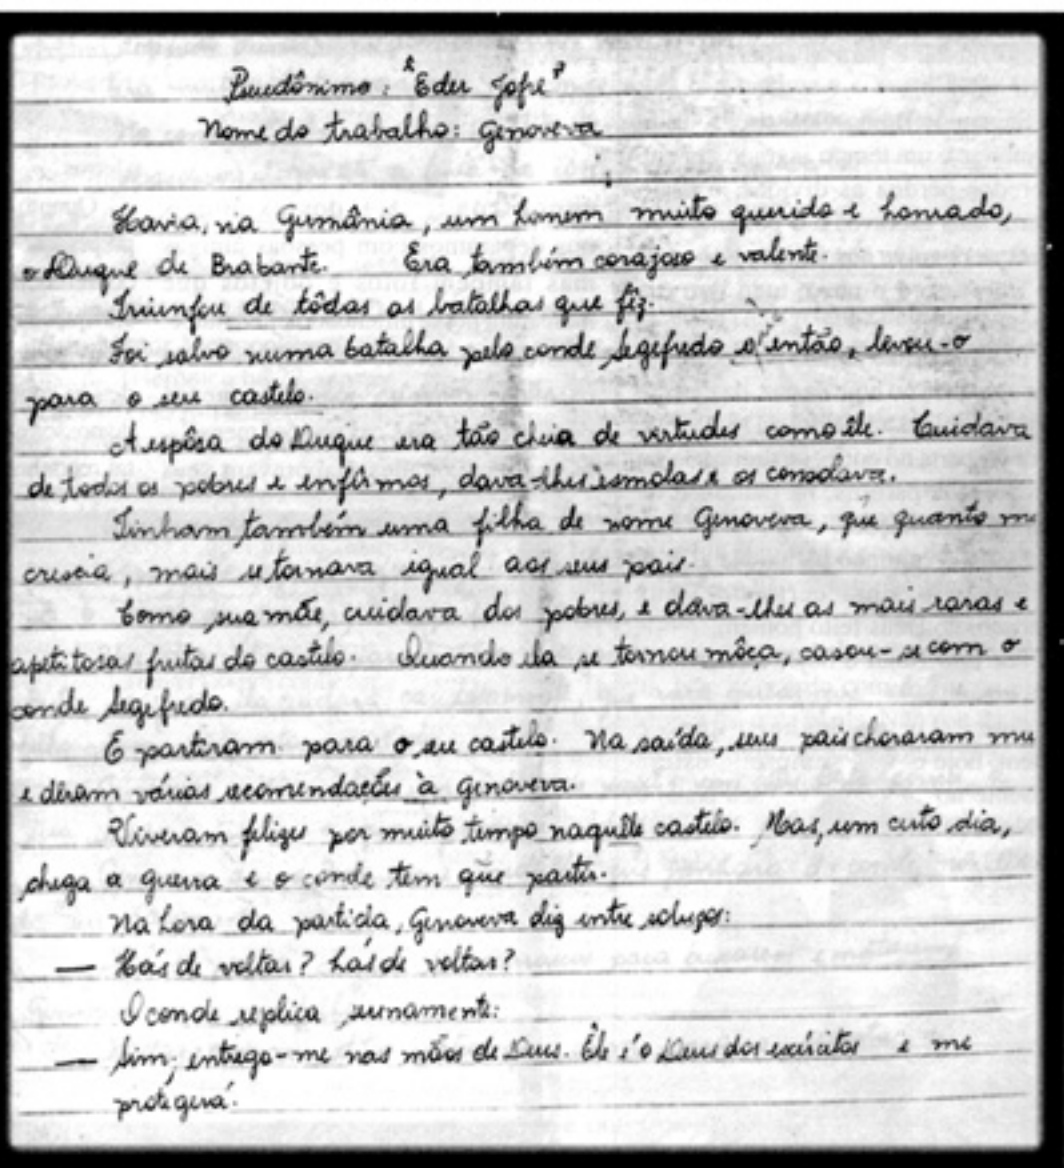 Pseudônimo: "Eder Jofre"
Nome do trabalho: Genoveva
Havia, na Germânia, um homem muito querido e honrado,
o Duque de Brabante. Era também corajoso e valente.
Triunfou de tôdas as batalhas que fêz.
Foi salvo numa batalha pelo conde Segefredo e então, levou-o
para o seu castelo.
A espôsa do Duque era tão cheia de virtudes como êle. Cuidava
de todos os pobres e enfêrmos, dava-lhes esmolas e os consolava.
Tinham também uma filha de nome Genoveva, que quanto m
crescia, mais se tornava igual aos seus pais.
Como sua mãe, cuidava dos pobres, e dava-lhes as mais raras e
apetitosas frutas do castelo. Quando ela se tornou môça, casou-se com o
conde Segefredo.
E partiram para o seu castelo. Na saída, seus pais choraram mu
e deram várias recomendações à Genoveva.
Viveram felizes por muito tempo naquêle castelo. Mas, um certo dia,
chega a guerra e o conde tem que partir.
Na hora da partida, Genoveva diz entre soluços:
— Hás de voltar? hás de voltar?
O conde replica serenamente:
— Sim; entrego-me nas mãos de Deus. Êle é o Deus dos exércitos e me
protegerá.